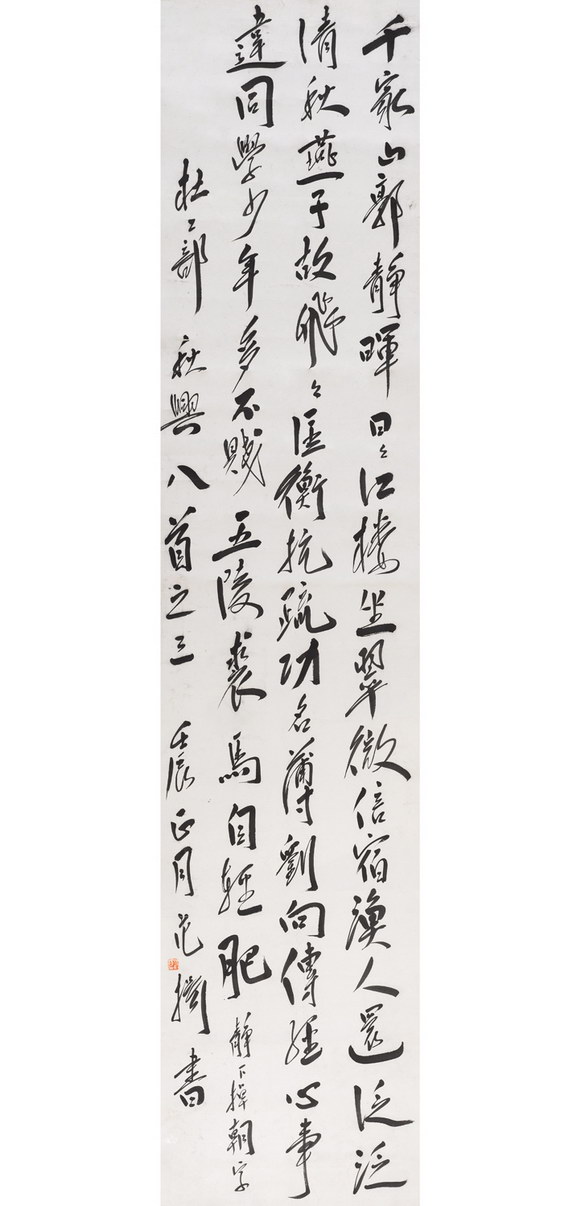 千家山郭靜暉日々江樓坐翠微信宿漁人還泛泛
清秋燕子故飛々匡衡抗疏功名薄劉向傳經心事
違同學少年多不賤五陵裘馬自輕肥 靜下掉朝字
杜工部 秋興八首之三 壬辰正月范書